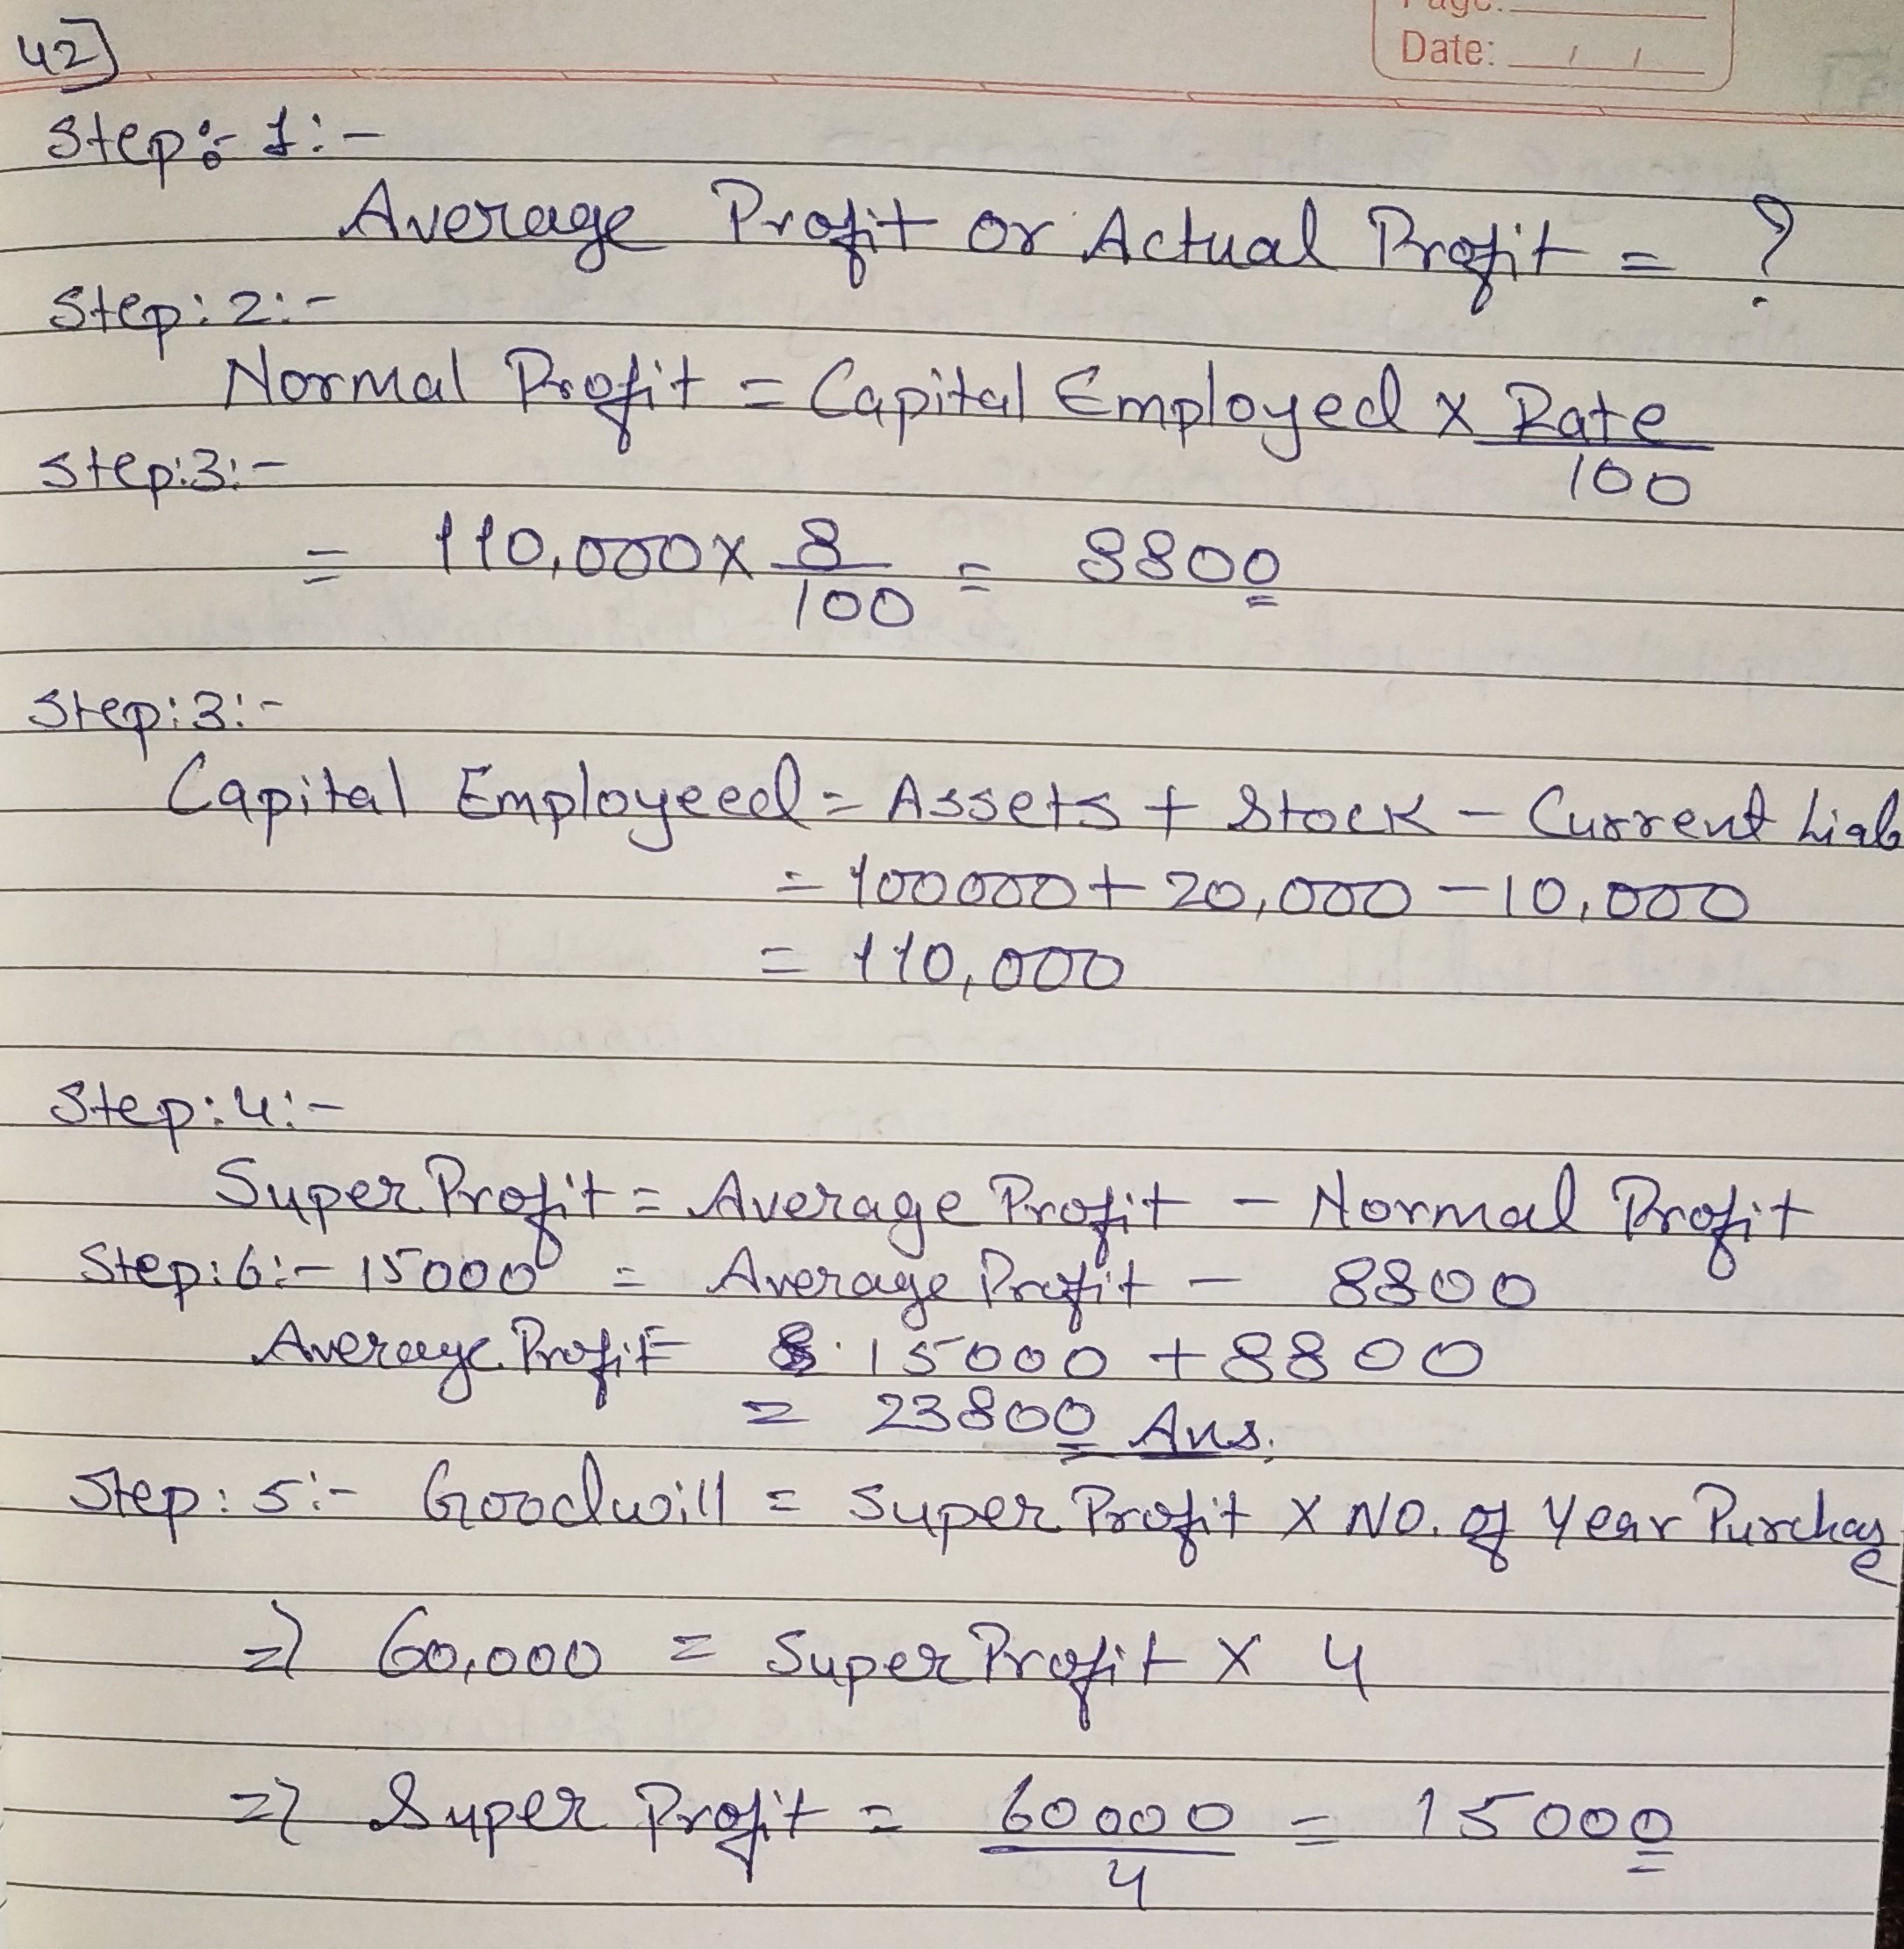 Page:
Date: / /
42]
Step:- 1:-
Average Profit or Actual Profit = ?
Step: 2:-
Normal Profit = Capital Employed x Rate
100
Step:3:-
= 110,000 x 8 = 8800
100
Step:3:-
Capital Employeed = Assets + Stock - Current Liab
= 100000 + 20,000 - 10,000
= 110,000
Step:4:-
Super Profit = Average Profit - Normal Profit
Step:6:- 15000 = Average Profit - 8800
Average Profit = 15000 + 8800
= 23800 Ans.
Step: 5:- Goodwill = Super Profit x No. of Year Purchase
=) 60,000 = Super Profit x 4
=) Super Profit = 60000 = 15000
4